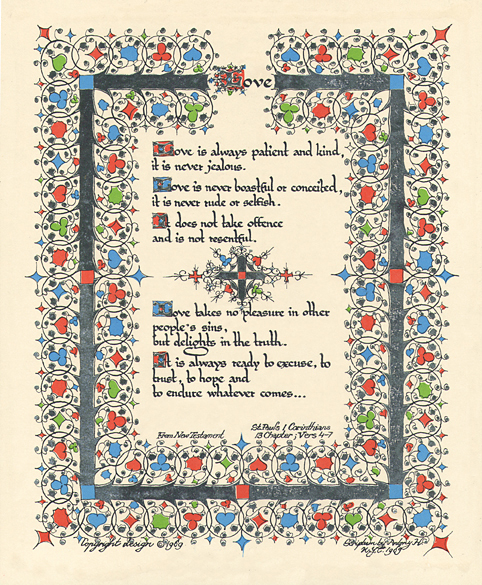 Love
Love is always patient and kind,
it is never jealous.
Love is never boastful or conceited,
it is never rude or selfish.
It does not take offence
and is not resentful.
Love takes no pleasure in other
people's sins,
but delights in the truth.
It is always ready to excuse, to
trust, to hope and
to endure whatever comes...
St. Paul's 1 Corinthians
From New Testament
13 Chapter; Vers 4-7
Copyright design © 1969
by
N.Y.C. 1969